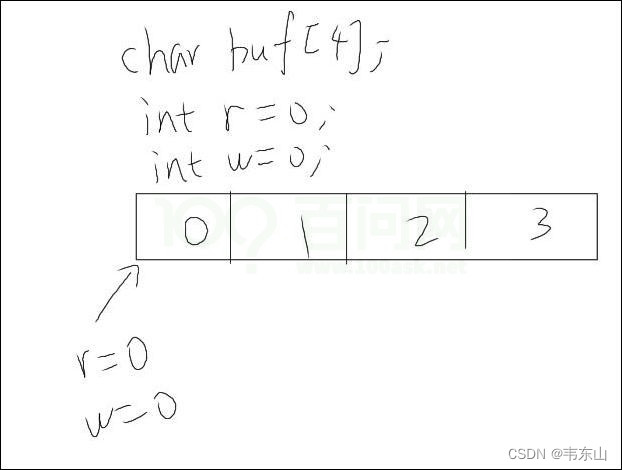 char buf[4];
int r=0;
int w=0;
0 1 2 3
100? 百问网
www.100ask.net
r=0
w=0
CSDN @韦东山